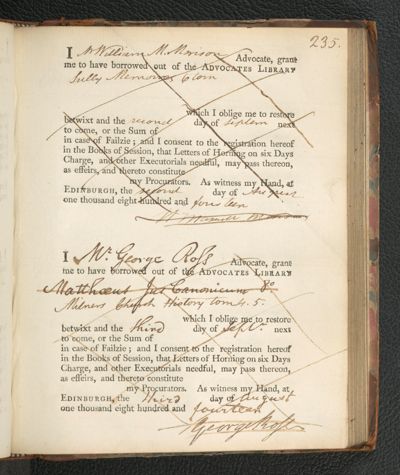 235.
I Mr William M. Morison Advocate, grant
me to have borrowed out of the ADVOCATES LIBRARY
Sully Memoires 6 tom
which I oblige me to restore
betwixt and the second day of Septem next
to come, or the Sum of
in case of Failzie; and I consent to the registration hereof
in the Books of Session, that Letters of Horning on six Days
Charge, and other Executorials needful, may pass thereon,
as effeirs, and thereto constitute
my Procurators. As witness my Hand, at
EDINBURGH, the second day of August
one thousand eight hundred and fourteen
I Mr. George Roſs Advocate, grant
me to have borrowed out of the ADVOCATES LIBRARY
Matthaeus Jus Canonicum 8o
Milners Church History tom 4. 5.
which I oblige me to restore
betwixt and the third day of Septr. next
to come, or the Sum of
in case of Failzie; and I consent to the registration hereof
in the Books of Session, that Letters of Horning on six Days
Charge, and other Executorials needful, may pass thereon,
as effeirs, and thereto constitute
my Procurators. As witness my Hand, at
EDINBURGH, the third day of August
one thousand eight hundred and fourteen
George Roſs